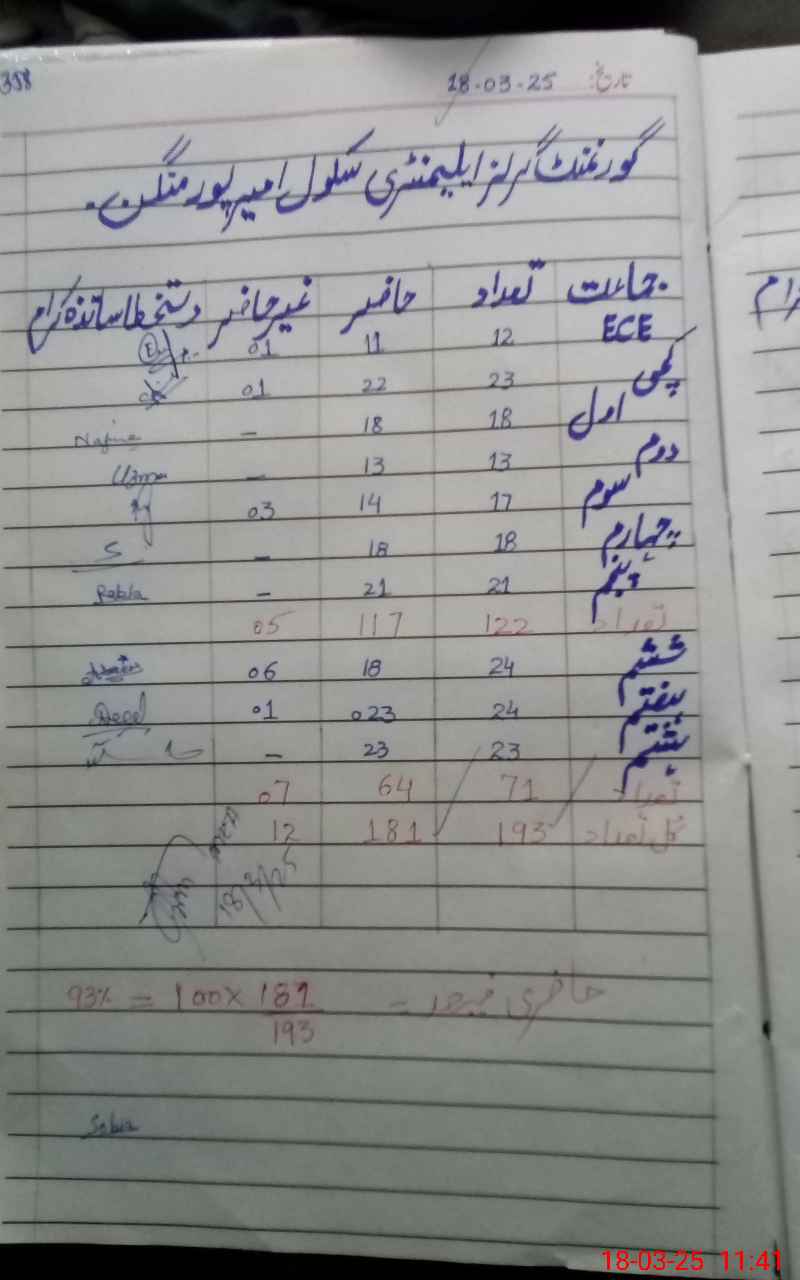 358
تاریخ: 18-03-25
گورنمنٹ گرلز ایلیمنٹری سکول امیر پور منگن۔
جماعت تعداد حاضر غیر حاضر دستخط اساتذہ کرام
ECE 12 11 01
کچی 23 22 01
اول 18 18 – Najma
دوم 13 13 – Uzma
سوم 17 14 03
چہارم 18 18 – S
پنجم 21 21 – Rabia
تعداد 122 117 05
ششم 24 18 06
ہفتم 24 023 01
ہشتم 23 23 –
تعداد 71 64 07
کل تعداد 193 181 12
18/3/25
حاضری فیصد = 181/193 × 100 = 93%
Sobia
رام
18-03-25 11:41